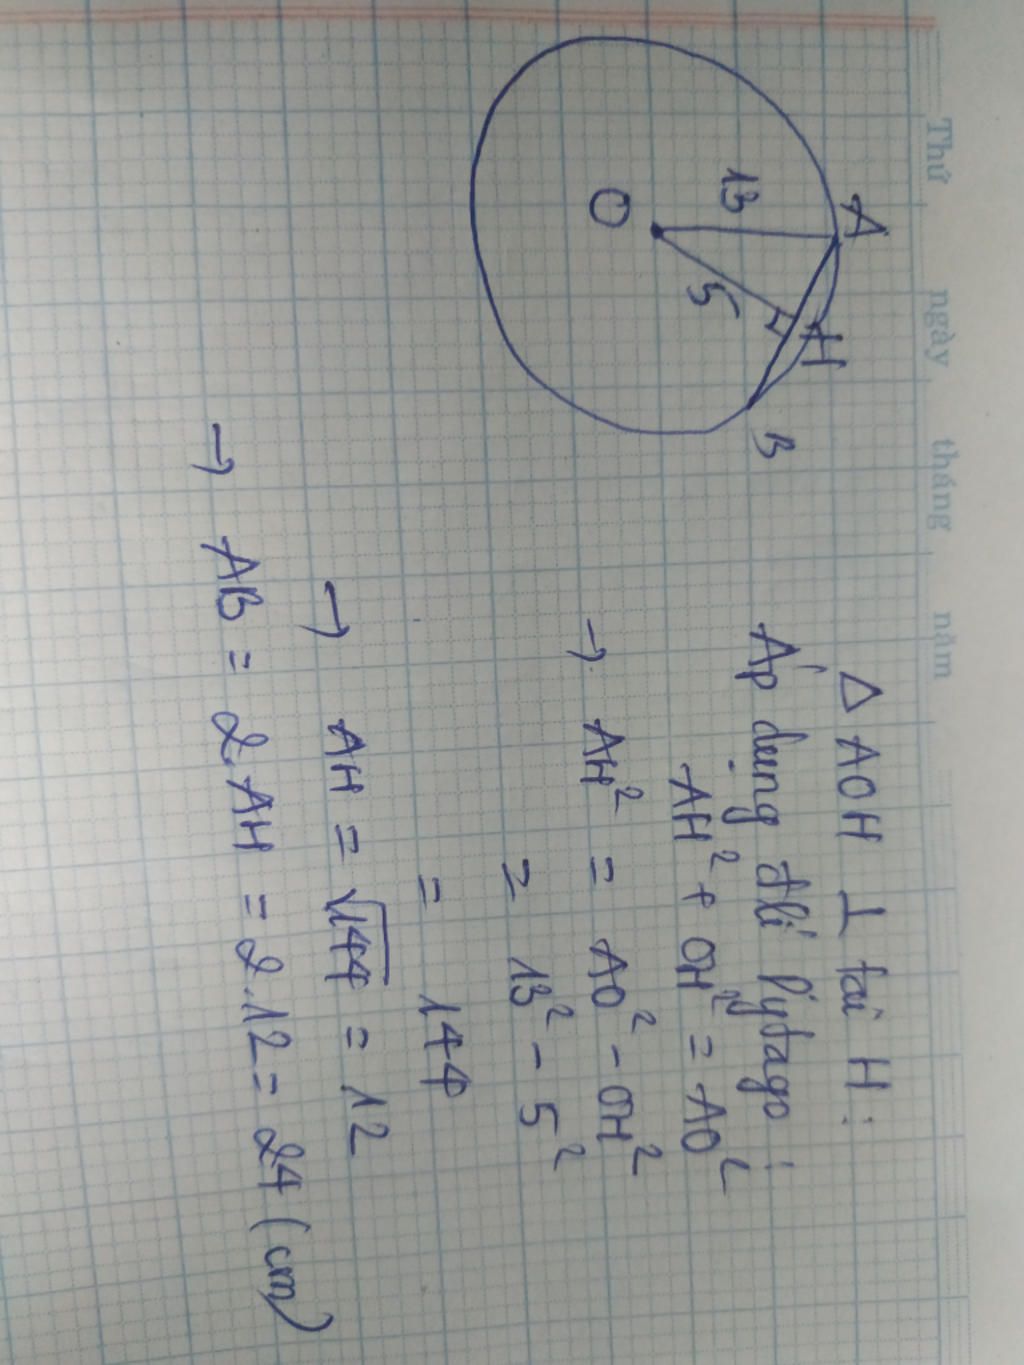 Thứ ngày tháng năm
A
13
O
5
H
B
Δ AOH ⊥ tại H :
Áp dụng đlí Pytago :
AH² + OH² = AO²
→ AH² = AO² - OH²
= 13² - 5²
= 144
→ AH = √144 = 12
→ AB = 2.AH = 2.12 = 24 (cm)